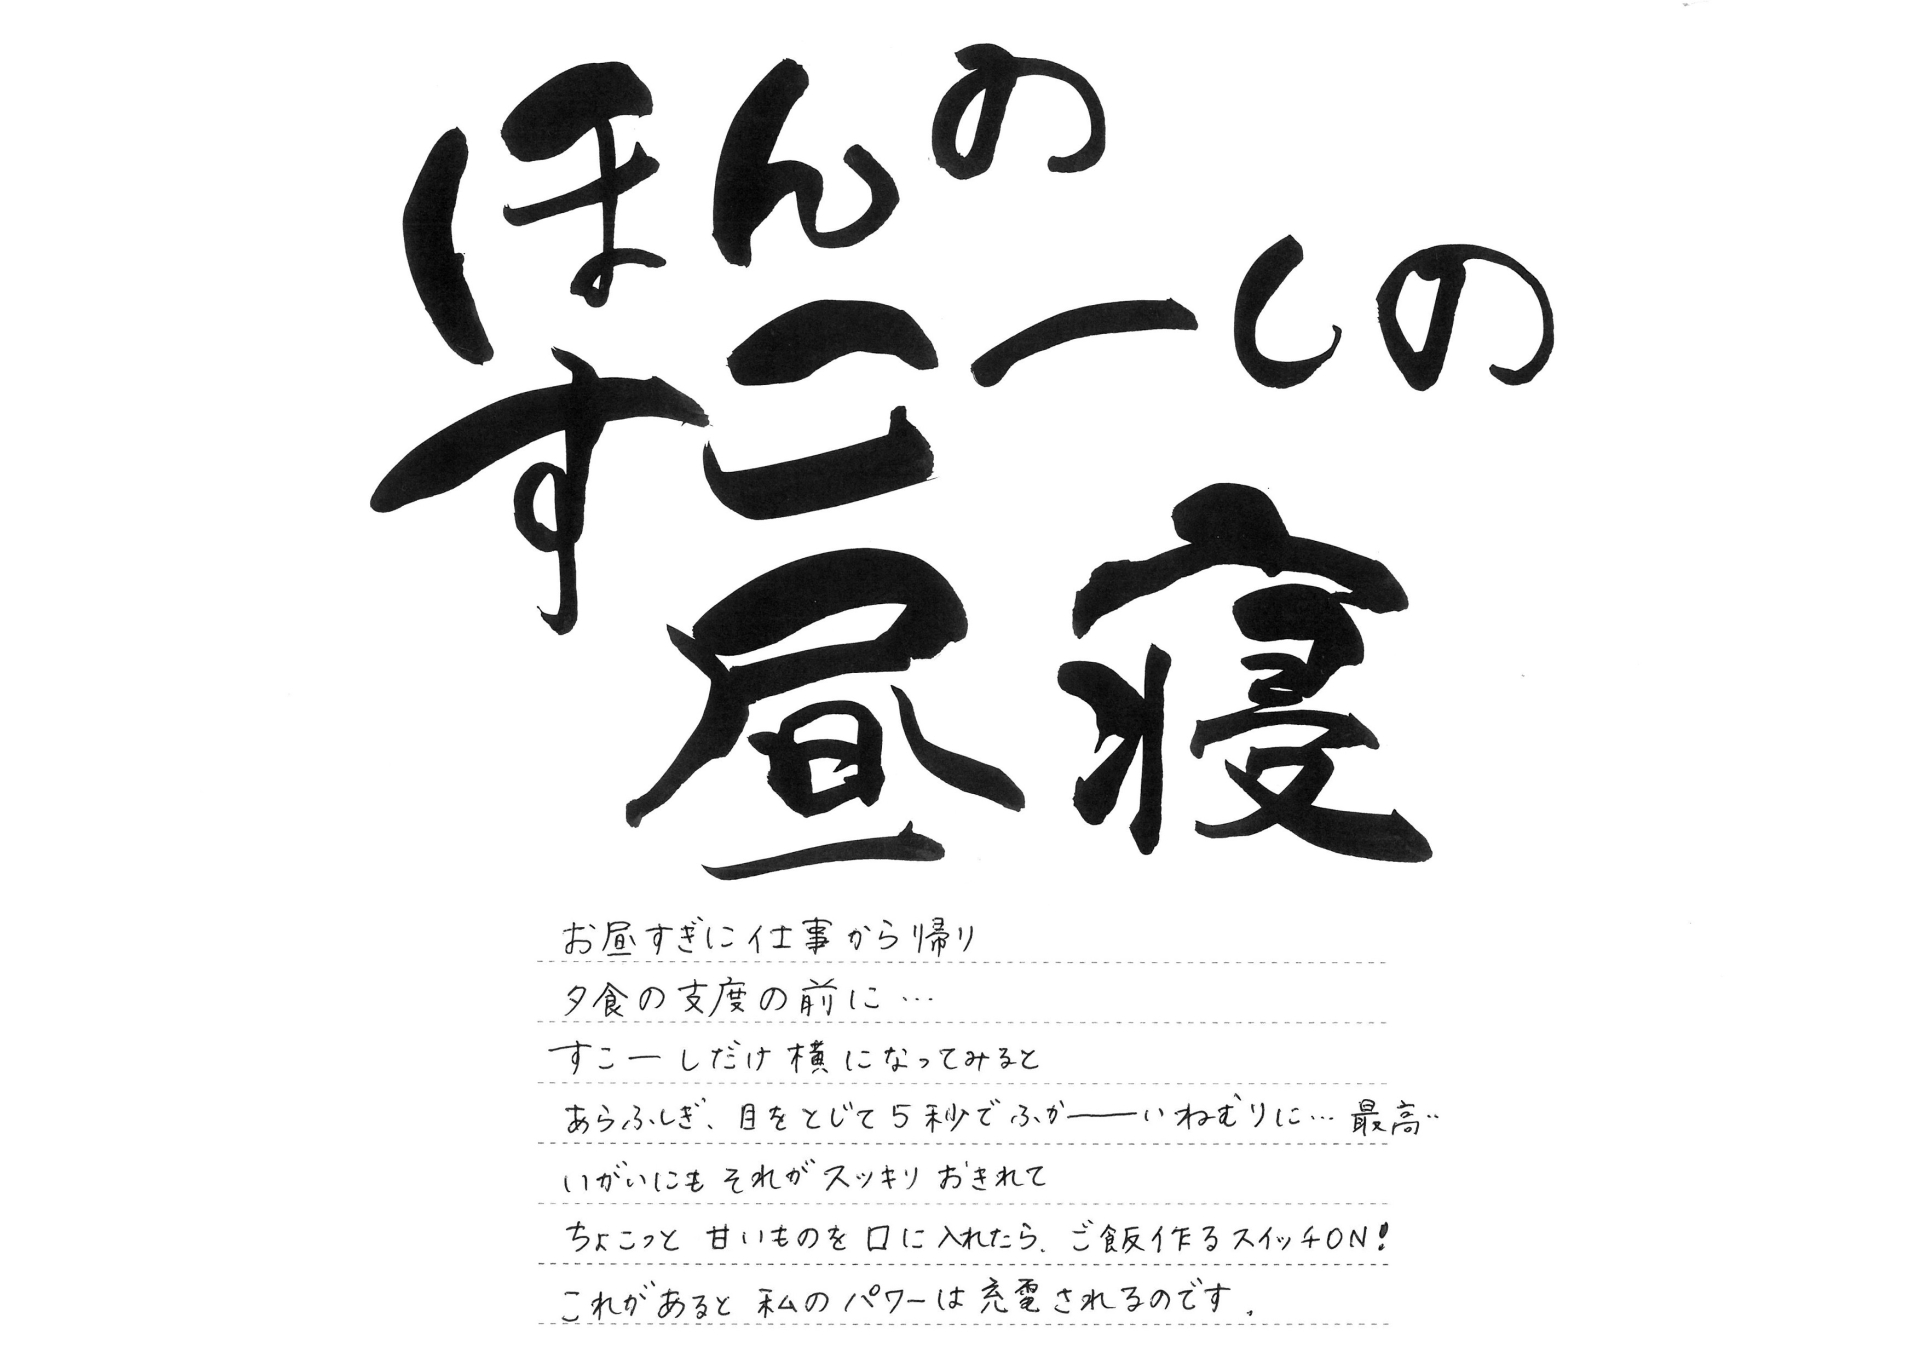 ほんの
すこーしの
昼寝
お昼すぎに仕事から帰り
夕食の支度の前に…
すこーしだけ横になってみると
あらふしぎ、目をとじて5秒でふか――いねむりに…最高‥
いがいにもそれがスッキリおきれて
ちょこっと甘いものを口に入れたら、ご飯作るスイッチON!
これがあると私のパワーは充電されるのです。